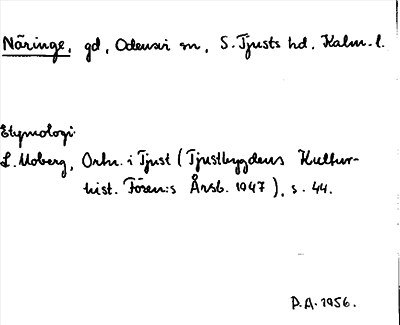 Näringe, gd, Odensvi sn, S. Tjusts hd, Kalm. l.
Etymologi
L. Moberg, Ortn. i Tjust (Tjustbygdens Kultur-
hist. Fören:s Årsb. 1947), s. 44.
P.A. 1956.